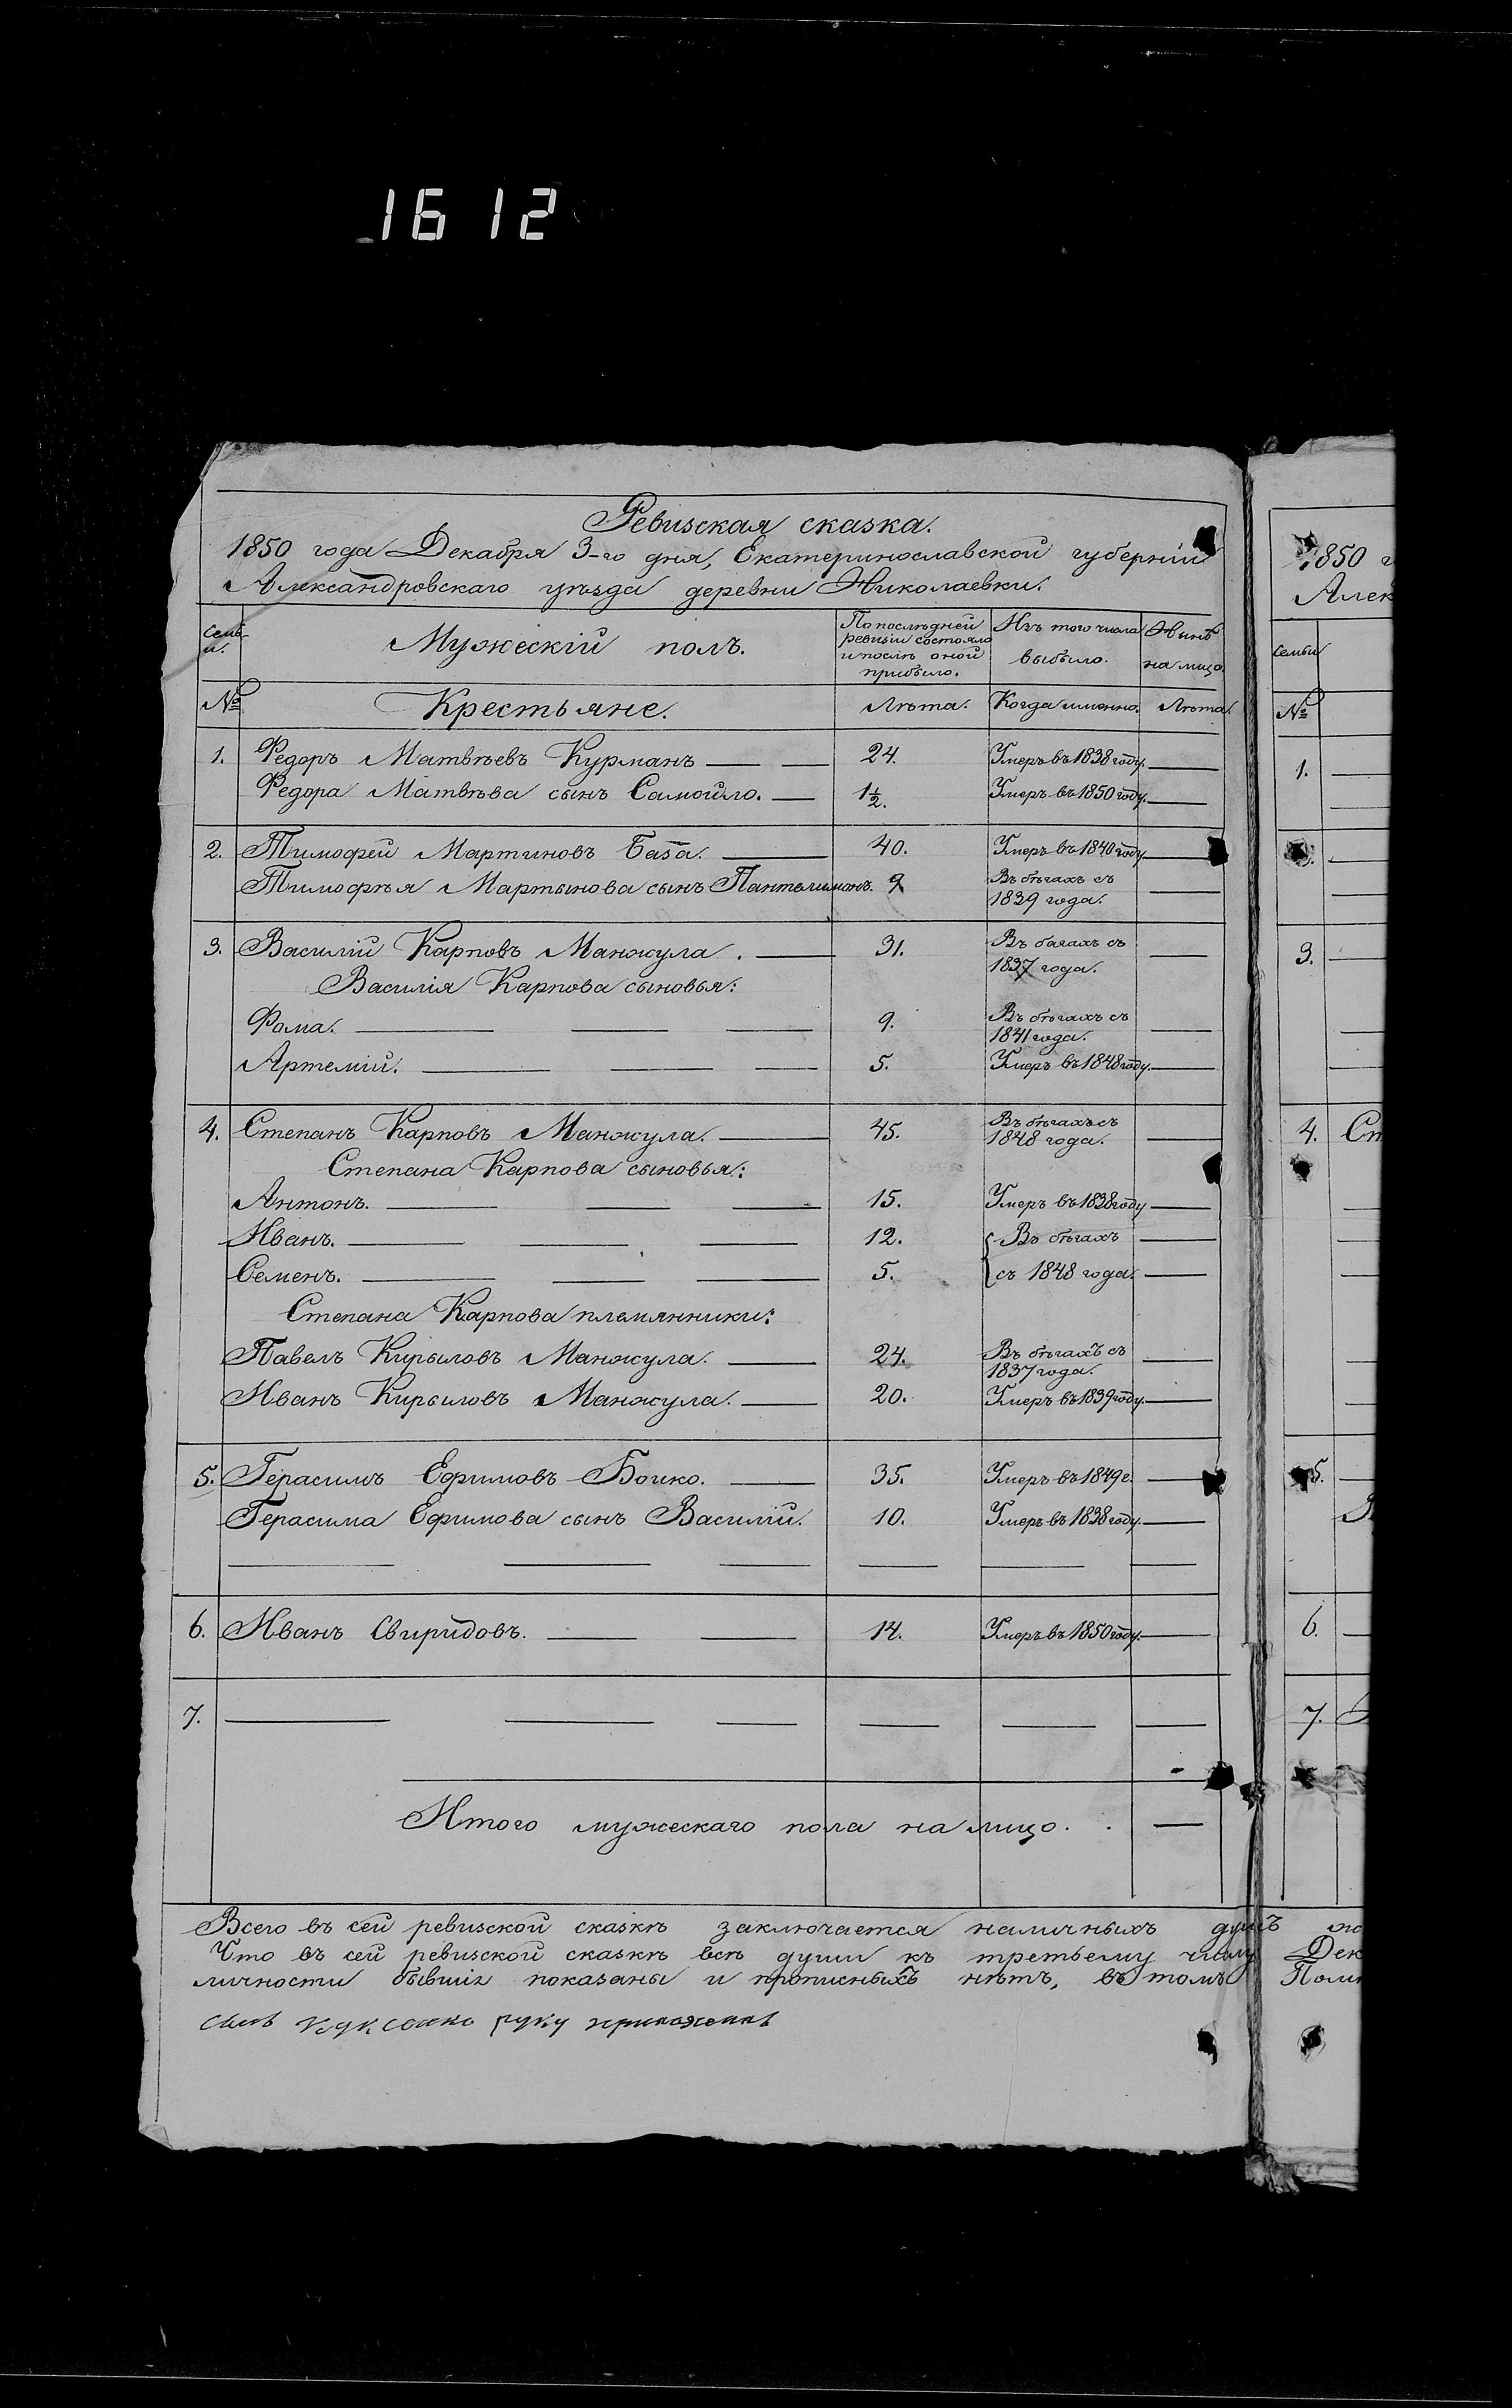 1612
Ревизская сказка.
1850 года Декабря 3-го дня, Екатеринославской губерніи
Александровскаго уѣзда деревни Николаевки.
Семьи.
Мужескій полъ.
По послѣдней ревизіи состояло и послѣ оной прибыло.
Изъ того числа выбыло.
Нынѣ на лицо.
№ Крестьяне. Лѣта. Когда именно. Лѣта.
1. Федоръ Матвѣевъ Курманъ 24. Умеръ въ 1838 году.
Федора Матвѣева сынъ Самойло. 1½. Умеръ въ 1850 году.
2. Тимофей Мартиновъ База. 40. Умеръ въ 1840 году
Тимофѣя Мартынова сынъ Пантелимонъ. 9 Въ бѣгахъ съ
1839 года.
3. Василій Карповъ Манжула. 31. Въ бѣгахъ съ
1837 года.
Василія Карпова сыновья:
Фома. 9. Въ бѣгахъ съ
1841 года.
Артемій. 5. Умеръ въ 1848 году.
4. Степанъ Карповъ Манжула. 45. Въ бѣгахъ съ
1848 года.
Степана Карпова сыновья:
Антонъ. 15. Умеръ въ 1838 году
Иванъ. 12. Въ бѣгахъ
Семенъ. 5. съ 1848 года.
Степана Карпова племянники:
Павелъ Кирыловъ Манжула. 24. Въ бѣгахъ съ
1837 года.
Иванъ Кирыловъ Манжула. 20. Умеръ въ 1839 году.
5. Герасимъ Ефимовъ Бойко. 35. Умеръ въ 1849 г.
Герасима Ефимова сынъ Василій. 10. Умеръ въ 1838 году.
6. Иванъ Свиридовъ. 14. Умеръ въ 1850 году.
7.
Итого мужескаго пола на лицо. .
Всего въ сей ревизской сказкѣ заключается наличныхъ душъ
Что въ сей ревизской сказкѣ всѣ души къ третьему числу Дек
личности бывшіе показаны и прописныхъ нѣтъ, въ томъ
руку приложилъ
1850 г
Алек
Семьи
№
1.
3.
4. Ст
5.
6.
7.